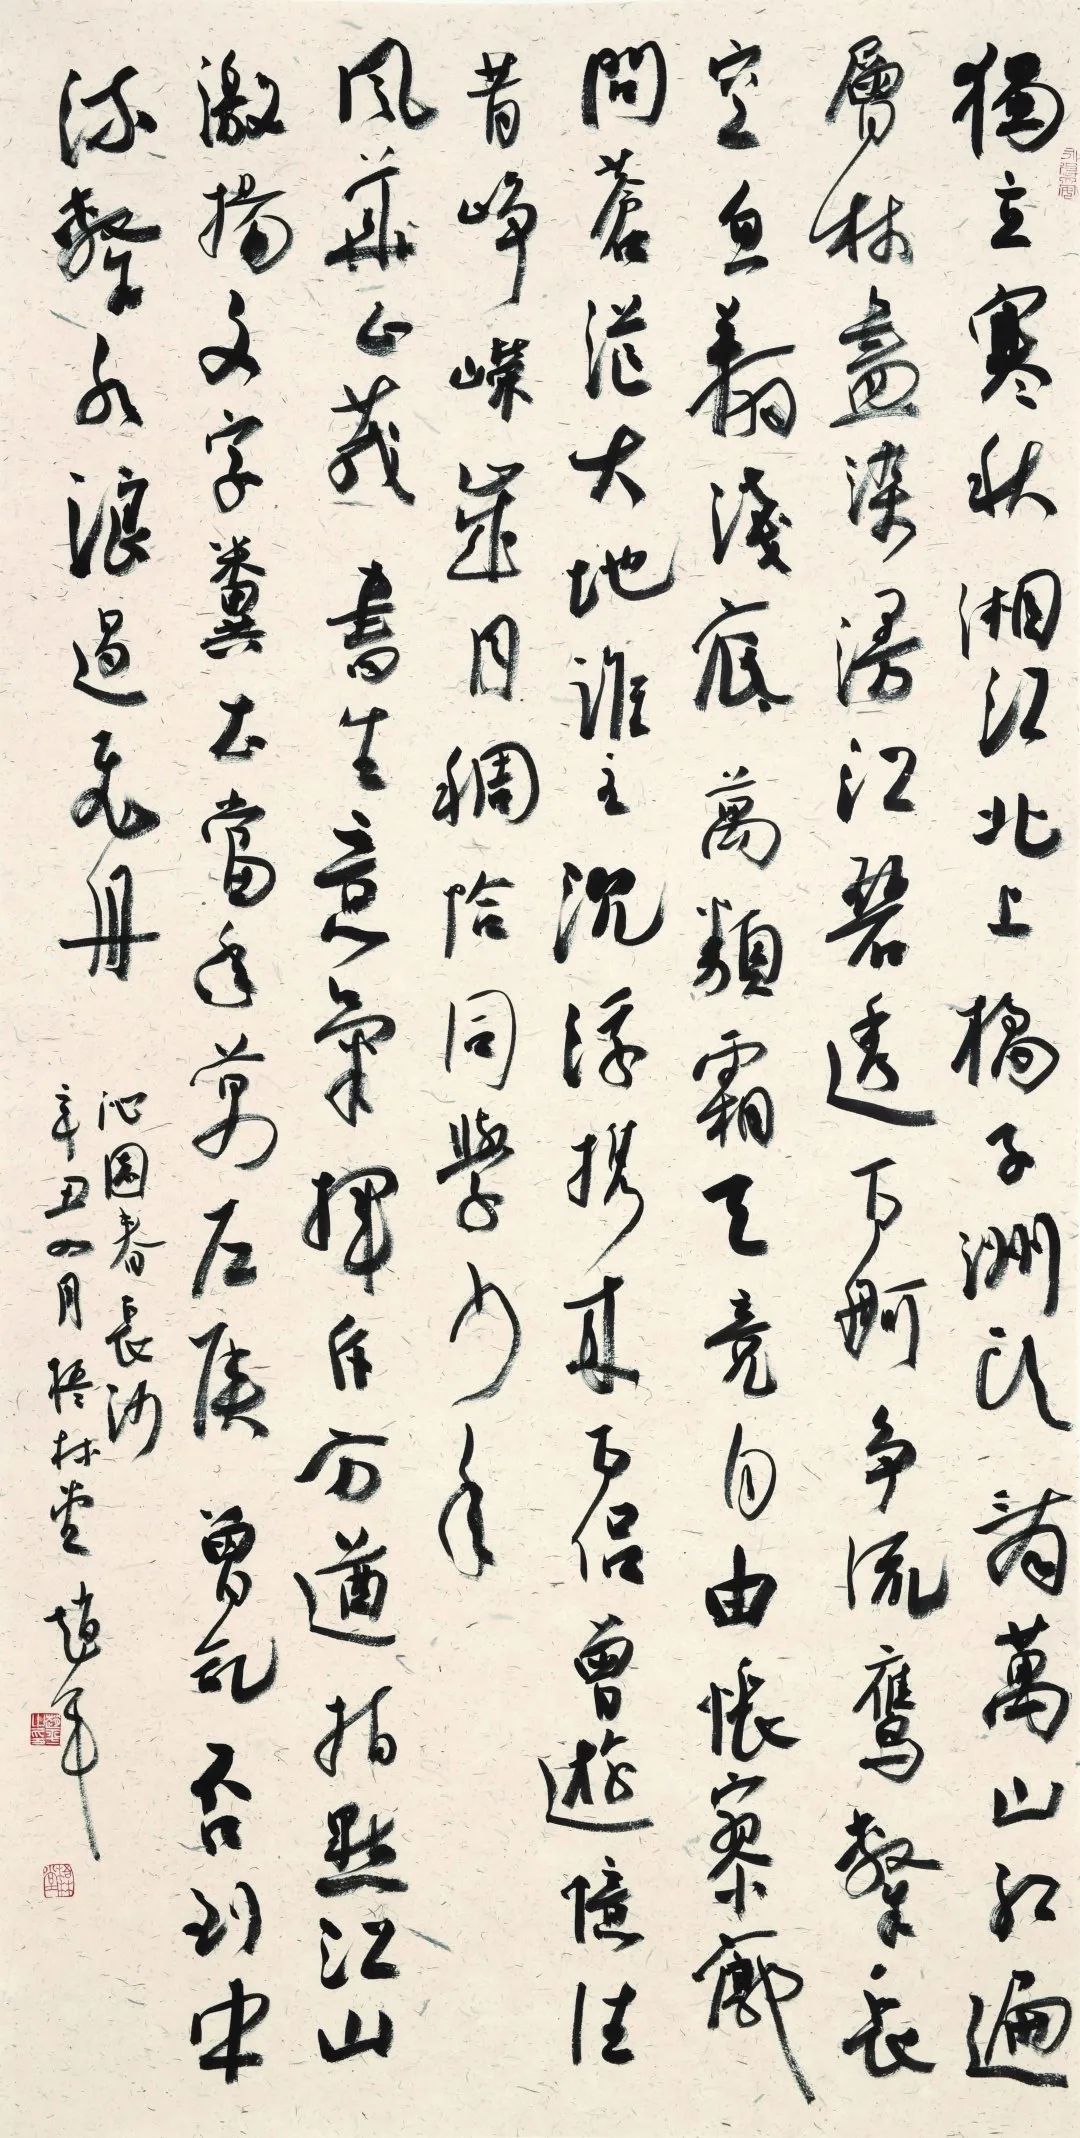 獨立寒秋湘江北上橘子洲頭看萬山紅遍
層林盡染漫江碧透百舸争流鷹擊長
空魚翔淺底萬類霜天竞自由悵寥廓
問蒼茫大地誰主沉浮携來百侣曾遊憶往
昔崢嶸歲月稠恰同學少年
風華正茂書生意氣揮斥方遒指點江山
激揚文字糞土當年萬户侯曾記否到中
流擊水浪遏飛舟
沁園春長沙
辛丑四月梧林堂趙